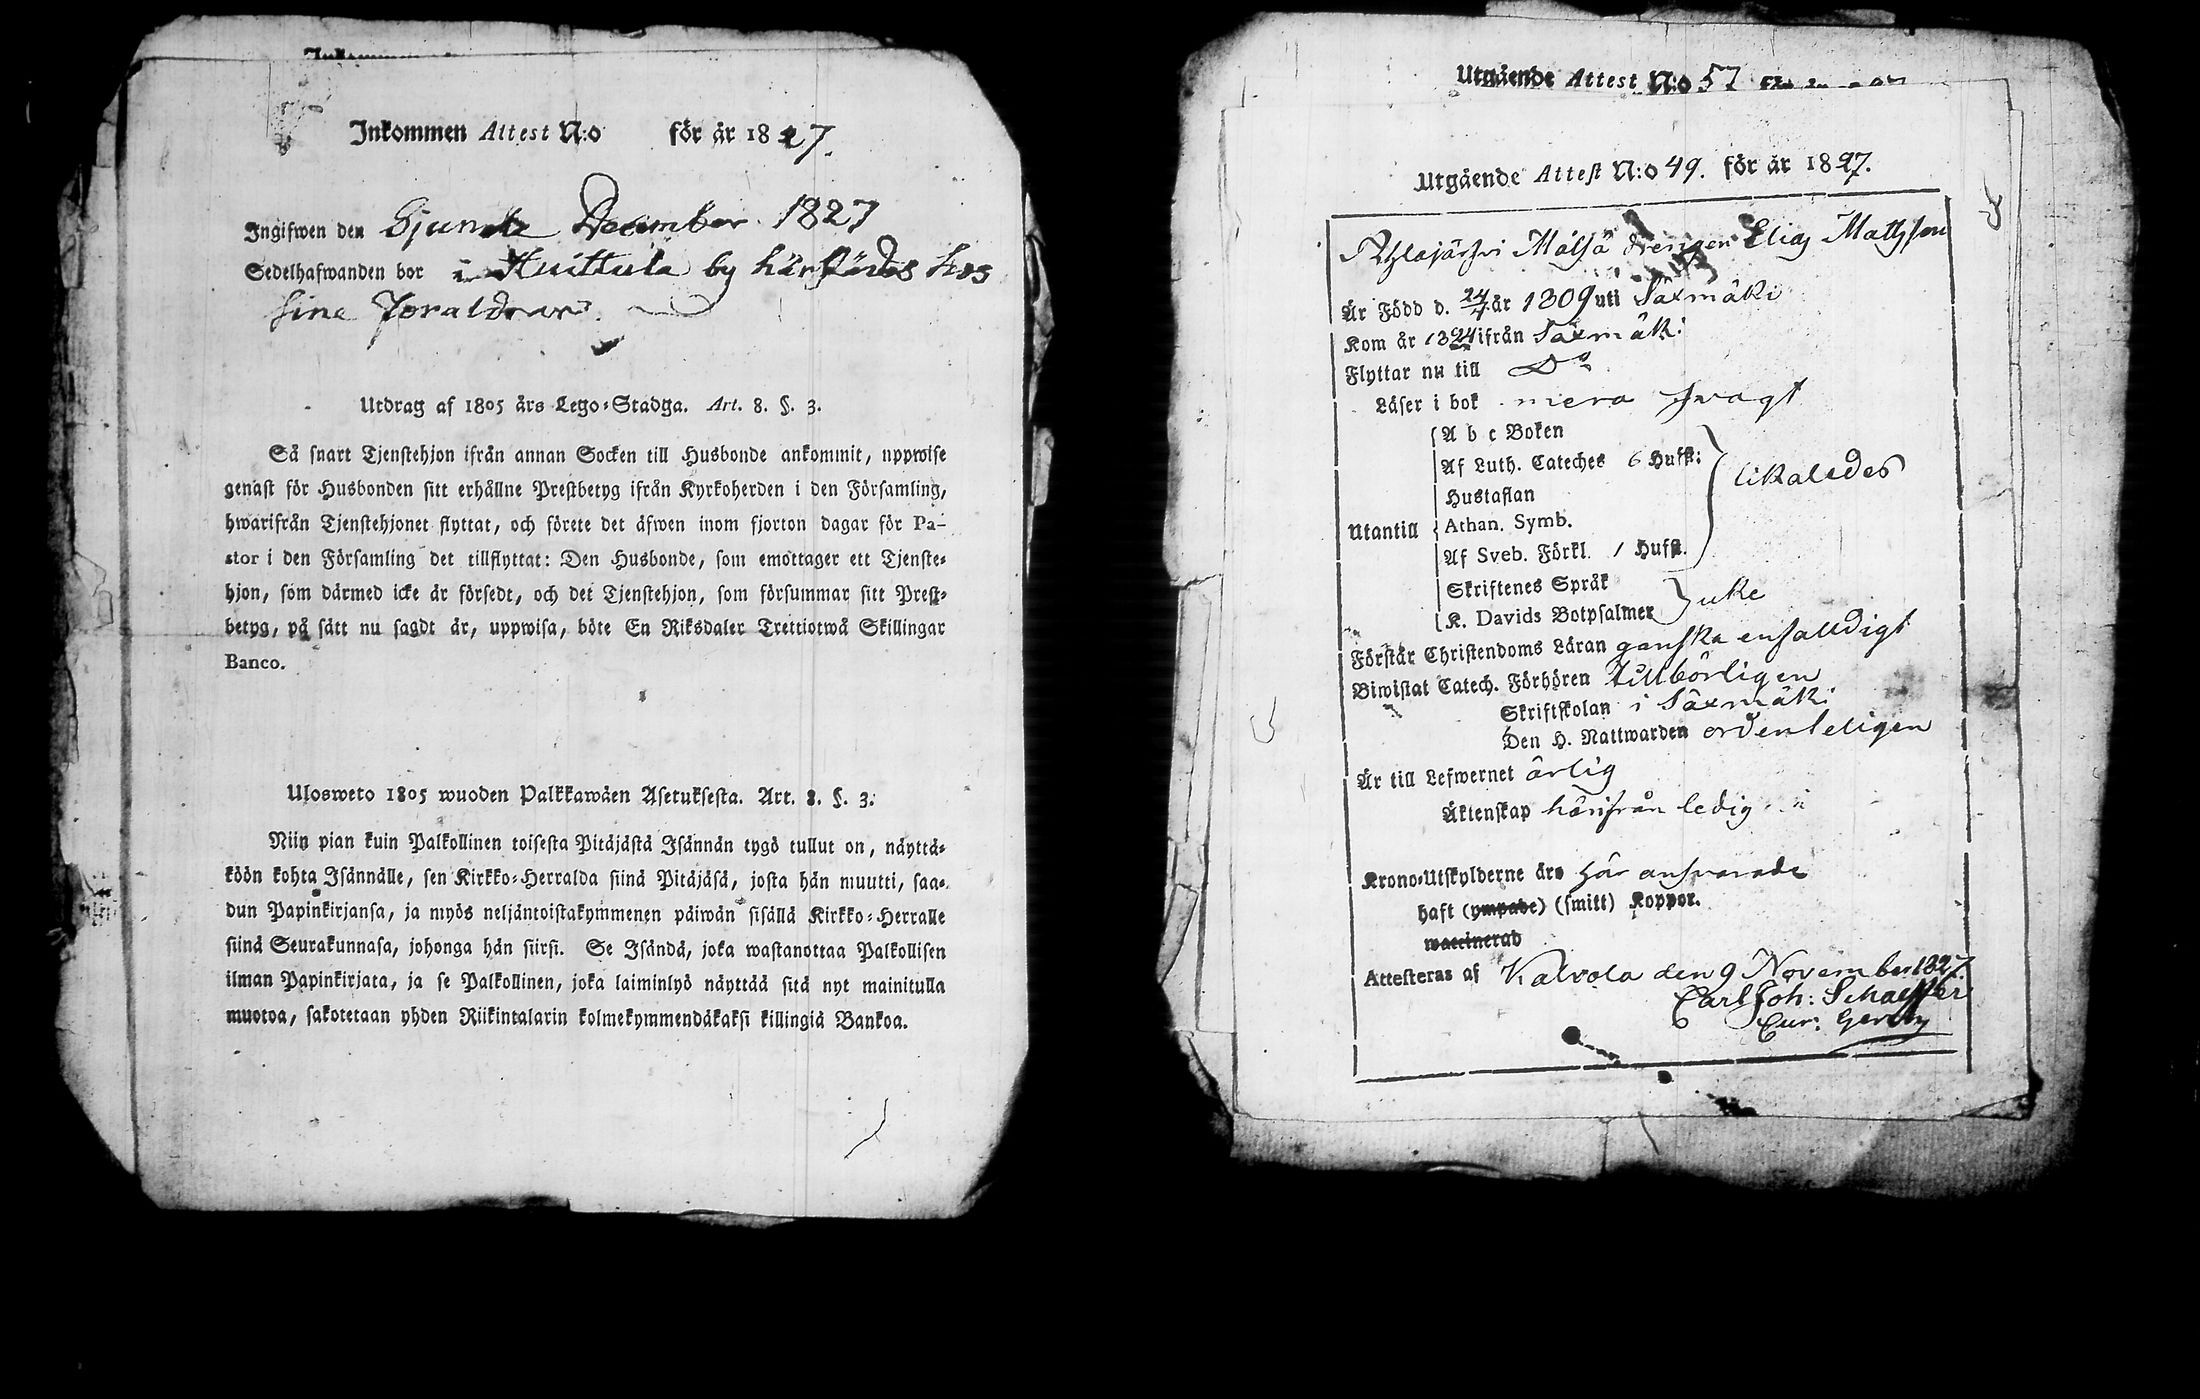 Inkommen Attest N:o för år 1827.
Ingifwen den Sjunde December 1827
Sedelhafwanden bor i Huittula by härstädes hos
sine Föräldrar.
Utdrag af 1805 års Lego-Stadga. Art. 8. §. 3.
Så snart Tjenstehjon ifrån annan Socken till Husbonde ankommit, uppwise
genast för Husbonden sitt erhållne Prestbetyg ifrån Kyrkoherden i den Församling,
hwarifrån Tjenstehjonet flyttat, och förete det äfwen inom fjorton dagar för Pa-
stor i den Församling det tillflyttat: Den Husbonde, som emottager ett Tjenste-
hjon, som därmed icke är försedt, och det Tjenstehjon, som försummar sitt Prest-
betyg, på sätt nu sagdt är, uppwisa, böte En Riksdaler Trettiotwå Skillingar
Banco.
Ulosweto 1805 wuoden Palkkawäen Asetuksesta. Art. 8. §. 3.
Niin pian kuin Palkollinen toisesta Pitäjästä Isännän tygö tullut on, näyttä-
köön kohta Isännälle, sen Kirkko-Herralda siinä Pitäjäsä, josta hän muutti, saa-
dun Papinkirjansa, ja myös neljäntoistakymmenen päiwän sisällä Kirkko-Herralle
siinä Seurakunnasa, johonga hän siirsi. Se Isändä, joka wastanottaa Palkollisen
ilman Papinkirjata, ja se Palkollinen, joka laiminlyö näyttää sitä nyt mainitulla
muotoa, sakotetaan yhden Riikintalarin kolmekymmendäkaksi killingiä Bankoa.
Utgående Attest N:o 57
Utgående Attest N:o 49. för år 1827.
Ahlajärvi Mälsä drengen Elias Mattsson
Är Född d. 24/7 år 1809 uti Säxmäki
Kom år 1824 ifrån Säxmäki
Flyttar nu till Do
Läser i bok mera swagt
A b c Boken
Af Luth. Cateches 6 Hufst:
Hustaflan
likaledes
Utantill Athan. Symb.
Af Sveb. Förkl. 1 Hufst.
Skriftenes Språk
K. Davids Botpsalmer icke
Förstår Christendoms Läran ganska enfalldigt
Biwistat Catech. Förhören tillbörligen
Skriftskolan i Säxmäki
Den H. Nattwarden ordenteligen
Är till Lefwernet ärlig
Äktenskap härifrån ledig
Krono-Utskylderne äro här answarade
haft (ympade) (smitt) Koppor.
waccinerad
Attesteras af Kalvola den 9 November 1827.
Carl Joh: Schaeffer
Cur: Gerens